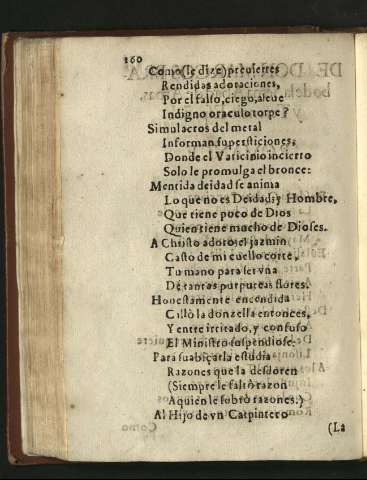 160
Como (le dize) preuiertes
Rendidas adoraciones,
Por el falso, ciego, aleue
Indigno oraculo torpe?
Simulacros del metal
Informan supersticiones,
Donde el Vaticinio incierto
Solo le promulga el bronce:
Mentida deidad se anima
Lo que no es Deidad, y Hombre,
Que tiene poco de Dios
Quien tiene mucho de Dioses.
A Christo adoro, el jazmin
Casto de mi cuello corte,
Tu mano para ser vna
De tantas purpureas flores.
Honestamente encendida
Callò la donzella entonces,
Y entre irritado, y confuso
El Ministro suspendiose.
Para suabiçarla estudia
Razones que la desdoren
(Siempre le faltò razon
A quien le sobrò razones.)
Al Hijo de vn Carpintero
(La